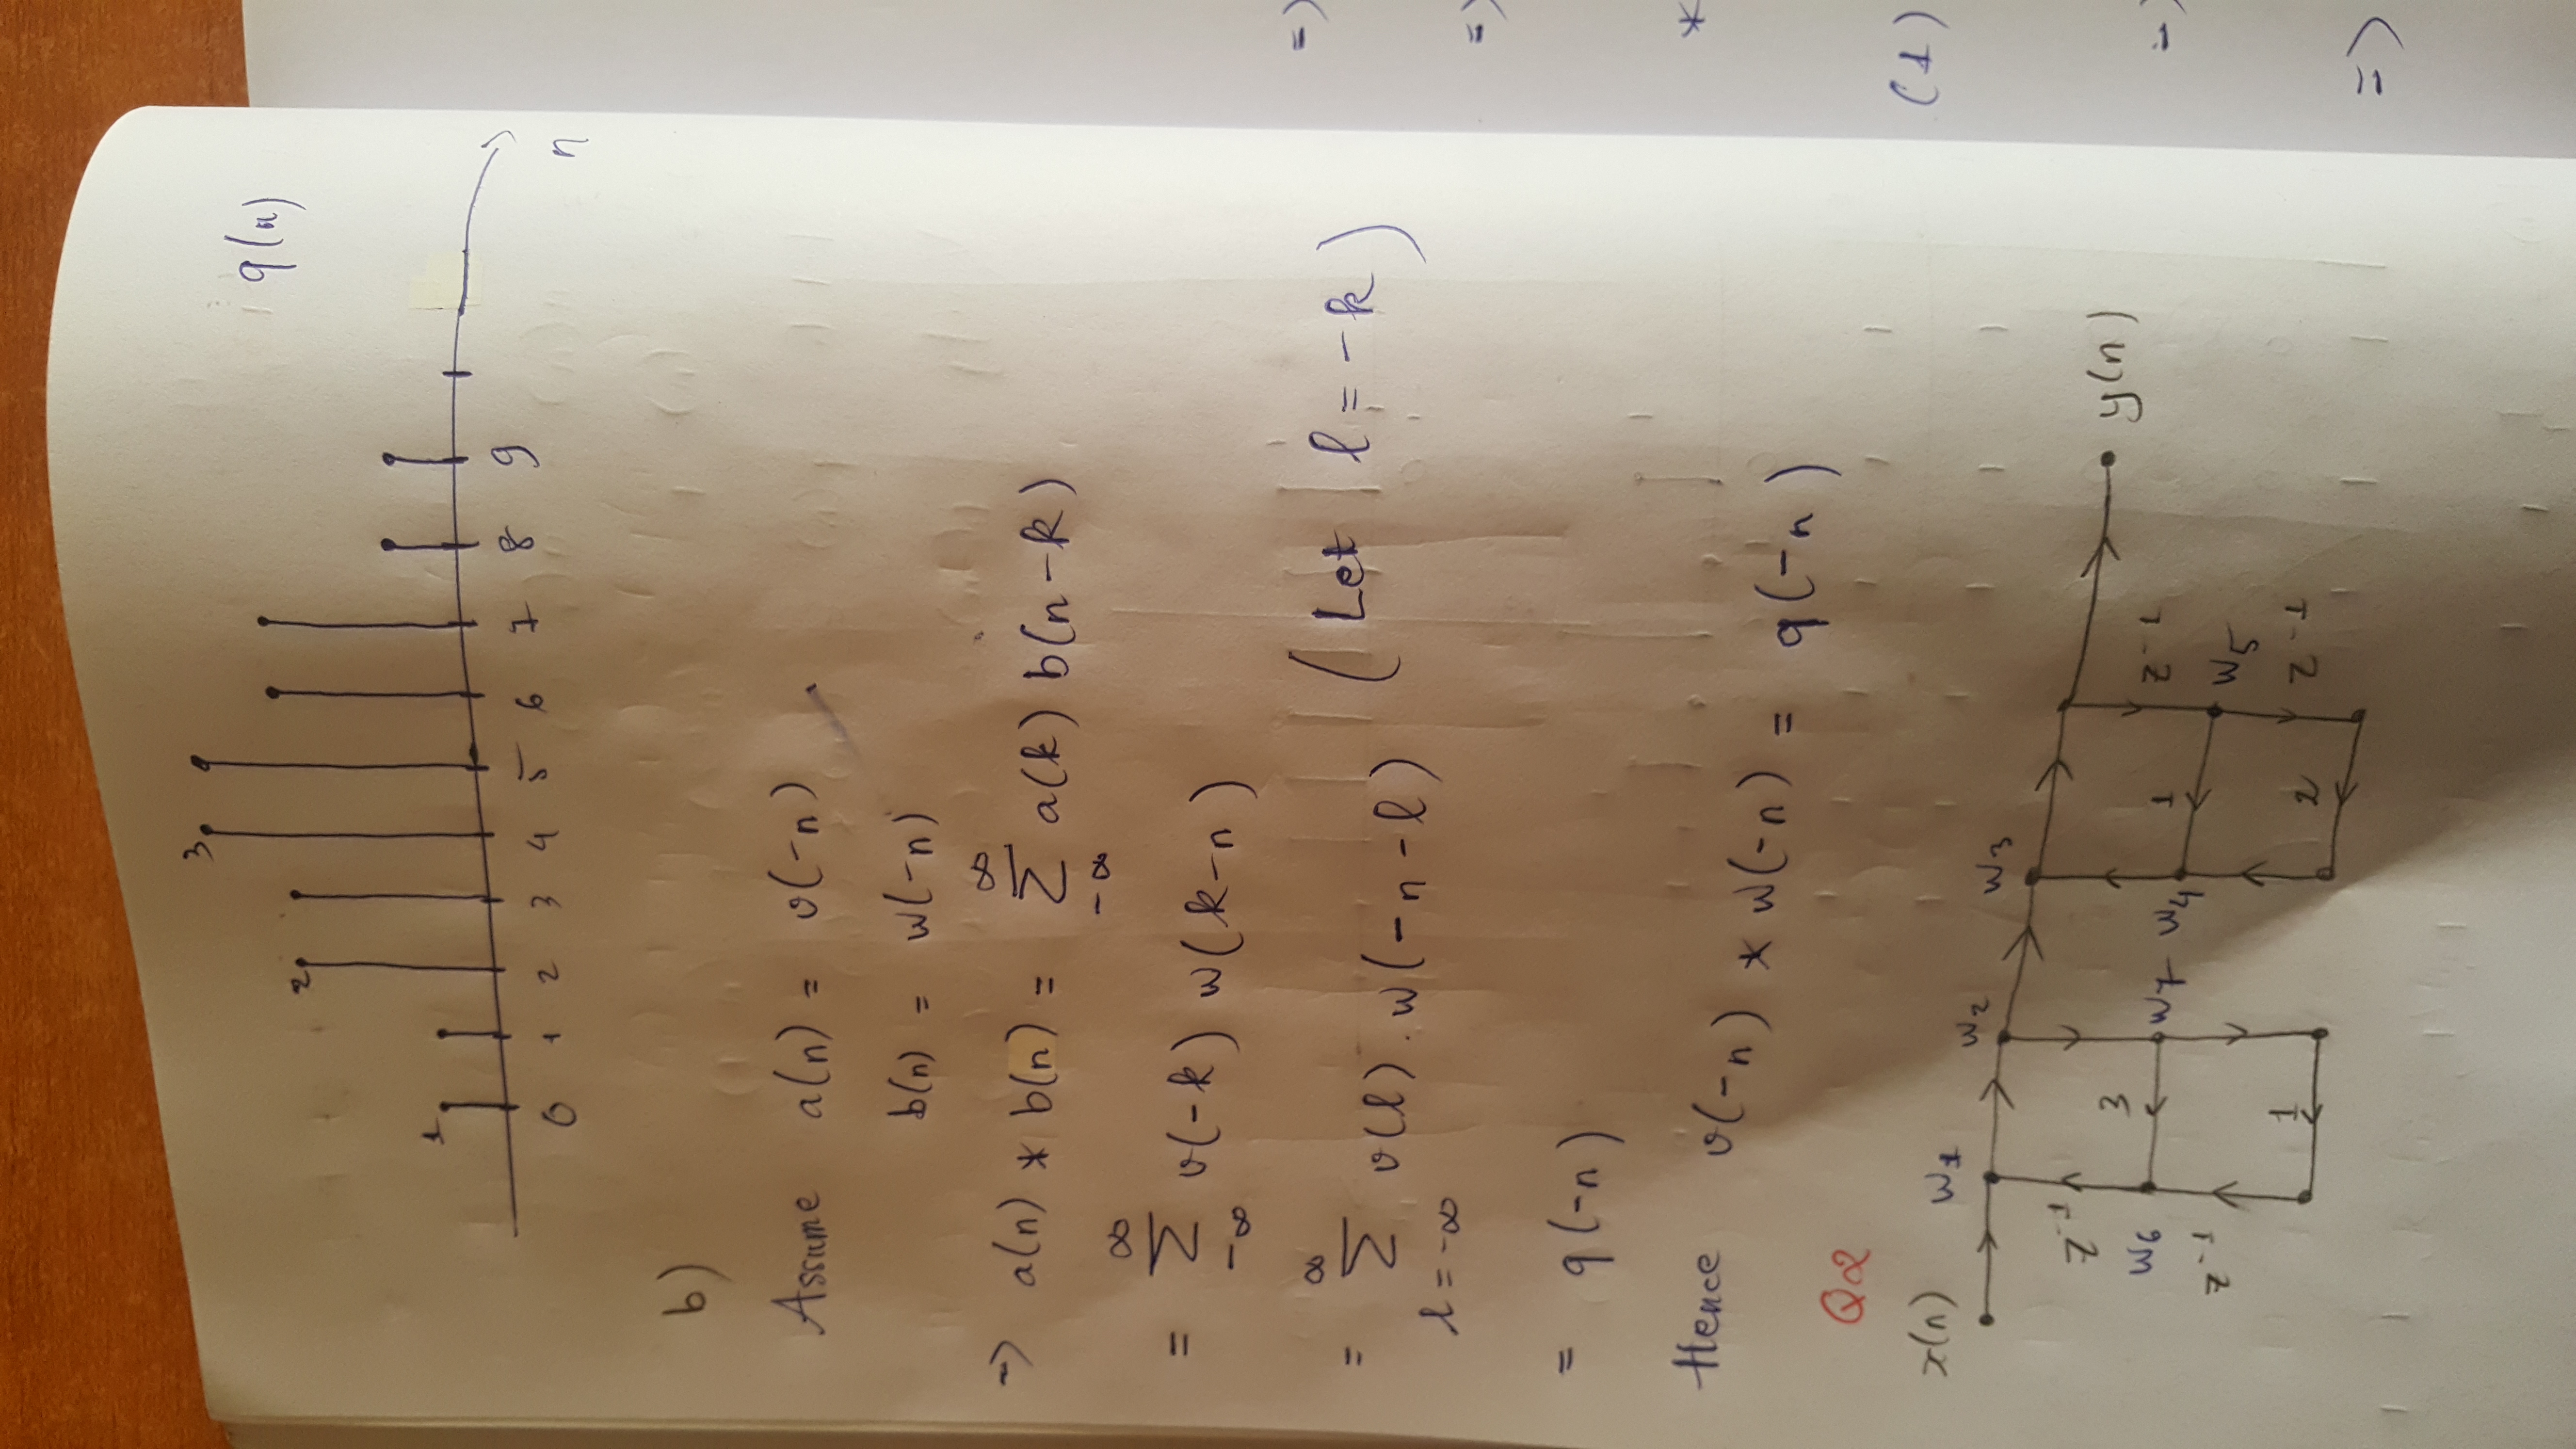 3
2
q(n)
1
0 1 2 3 4 5 6 7 8 9
n
b)
Assume a(n) = v(-n)
b(n) = w(-n)
=> a(n) * b(n) = ∞ Σ -∞ a(k) b(n-k)
= ∞ Σ -∞ v(-k) w(k-n)
= ∞ Σ l=-∞ v(l) . w(-n-l) (Let l = -k)
= q(-n)
Hence v(-n) * w(-n) = q(-n)
Q2
x(n) w1 w2 w3
z⁻¹ 3 y(n)
w6 w7 w4 1 z⁻¹
z⁻¹ w5
1 2 z⁻¹
=>
=>
*
(1)
=>
=>